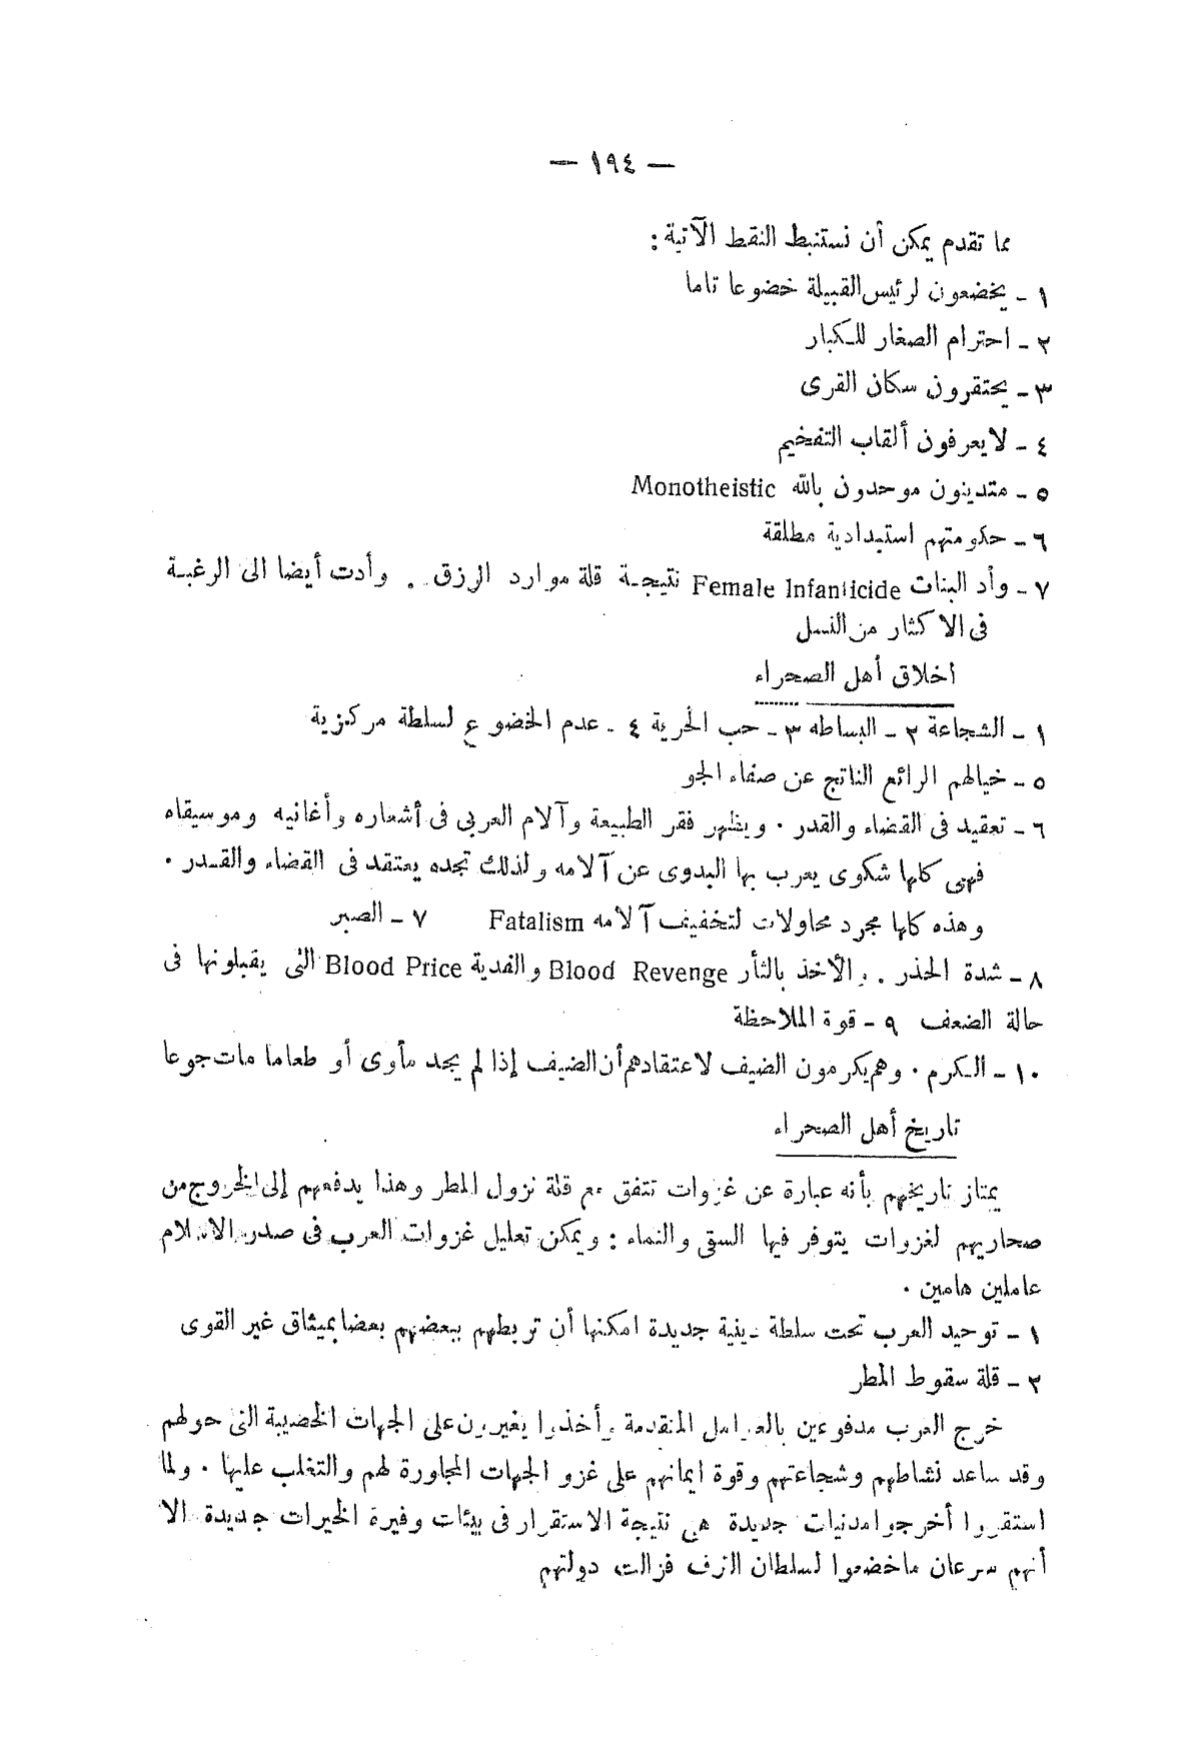 — ١٩٤ —
مما تقدم يمكن أن نستنبط النقط الآتية :
١ – يخضعون لرئيس القبيلة خضوعا تاما
٢ – احترام الصغار للكبار
٣ – يحتقرون سكان القرى
٤ – لايعرفون ألقاب التفخيم
٥ – متدينون موحدون بالله Monotheistic
٦ – حكومتهم استبدادية مطلقة
٧ – وأد البنات Female Infanticide نتيجة قلة موارد الرزق . وأدت أيضا الى الرغبة
فى الاكثار من النسل
أخلاق أهل الصحراء
١ – الشجاعة ٢ – البساطه ٣ – حب الحرية ٤ – عدم الخضوع لسلطة مركزية
٥ – خيالهم الرائع الناتج عن صفاء الجو
٦ – تعقيد فى القضاء والقدر . ويظهر فقر الطبيعة وآلام العربى فى أشعاره وأغانيه وموسيقاه
فهى كلها شكوى يعرب بها البدوى عن آلامه ولذلك تجده يعتقد فى القضاء والقدر .
وهذه كلها مجرد محاولات لتخفيف آلامه Fatalism ٧ – الصبر
٨ – شدة الحذر . والأخذ بالثأر Blood Revenge والفدية Blood Price التى يقبلونها فى
حالة الضعف ٩ – قوة الملاحظة
١٠ – الكرم . وهم يكرمون الضيف لاعتقادهم أن الضيف إذا لم يجد مأوى أو طعاما مات جوعا
تاريخ أهل الصحراء
يمتاز تاريخهم بأنه عبارة عن غزوات تتفق مع قلة نزول المطر وهذا يدفعهم إلى الخروج من
صحاريهم لغزوات يتوفر فيها السقى والنماء : ويمكن تعليل غزوات العرب فى صدر الاسلام
عاملين هامين .
١ – توحيد العرب تحت سلطة دينية جديدة امكنها أن تربطهم ببعضهم بعضا بميثاق غير القوى
٢ – قلة سقوط المطر
خرج العرب مدفوعين بالعوامل المتقدمة وأخذوا يغيرون على الجهات الخصيبة التى حولهم
وقد ساعد نشاطهم وشجاعتهم وقوة ايمانهم على غزو الجهات المجاورة لهم والتغلب عليها . ولما
استقروا أخرجوا مدنيات جديدة هى نتيجة الاستقرار فى بيئات وفيرة الخيرات جديدة الا
أنهم سرعان ماخضعوا لسلطان الترف فزالت دولتهم